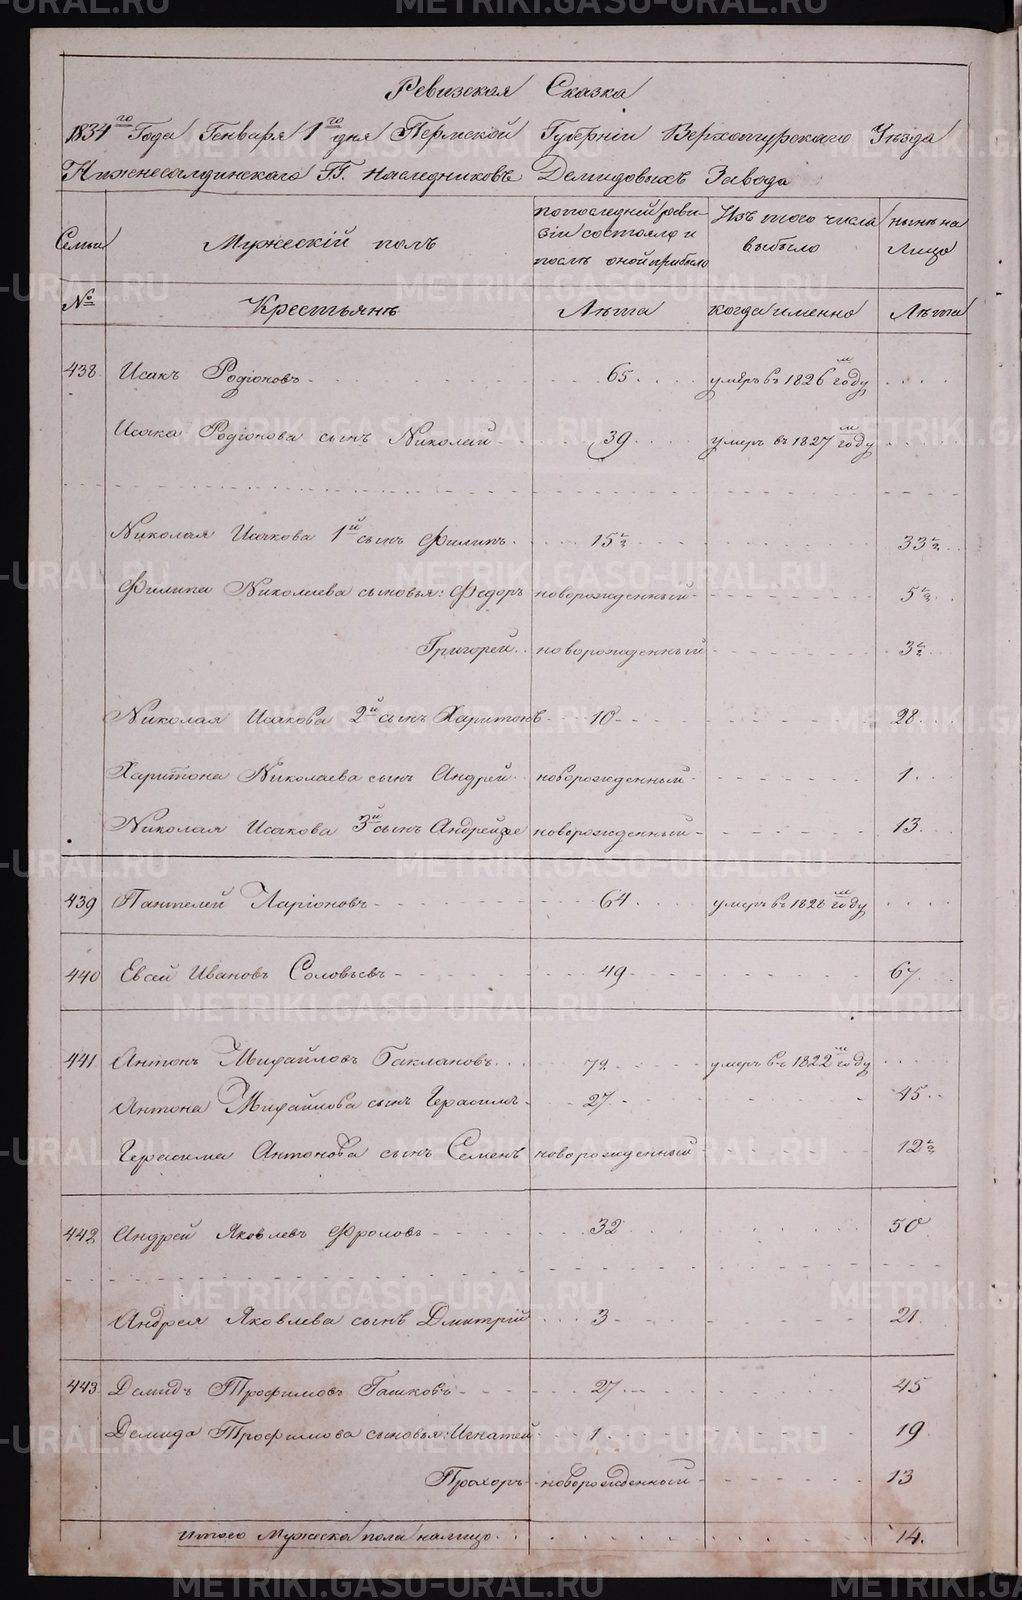 Ревизская Сказка
1834го Года Генваря 1го дня Пермской Губернiи Верхотурскаго Уѣзда
Нижнесалдинскаго ГГ. Наследниковъ Демидовыхъ Завода
Семьи Мужескiй полъ по последней реви-зiи состояло и послѣ оной прибыло Изъ того числа выбыло нынѣ на лицо
№ Крестьянъ Лѣта когда именно Лѣта
438 Исакъ Родiоновъ 65 умеръ въ 1826м году
Исака Родiонова сынъ Николай 39 умеръ въ 1827м году
Николая Исакова 1й сынъ Филипъ 15½ 33½
Филипа Николаева сыновья: Федоръ новорожденный 5½
Григорей новорожденный 3½
Николая Исакова 2й сынъ Харитонъ 10 28
Харитона Николаева сынъ Андрей новорожденный 1
Николая Исакова 3й сынъ Андрей же новорожденный 13
439 Пантелей Ларiоновъ 64 умеръ въ 1828м году
440 Евсей Ивановъ Соловьевъ 49 67
441 Антонъ Михайловъ Баклановъ 72 умеръ въ 1822м году
Антона Михайлова сынъ Герасимъ 27 45
Герасима Антонова сынъ Семенъ новорожденный 12½
442 Андрей Яковлевъ Фроловъ 32 50
Андрея Яковлева сынъ Дмитрiй 3 21
443 Демидъ Трофимовъ Гашковъ 27 45
Демида Трофимова сыновья: Игнатей 1 19
Прохоръ новорожденный 13
Итого Мужеска пола налицо 14.
METRIKI.GASO-URAL.RU